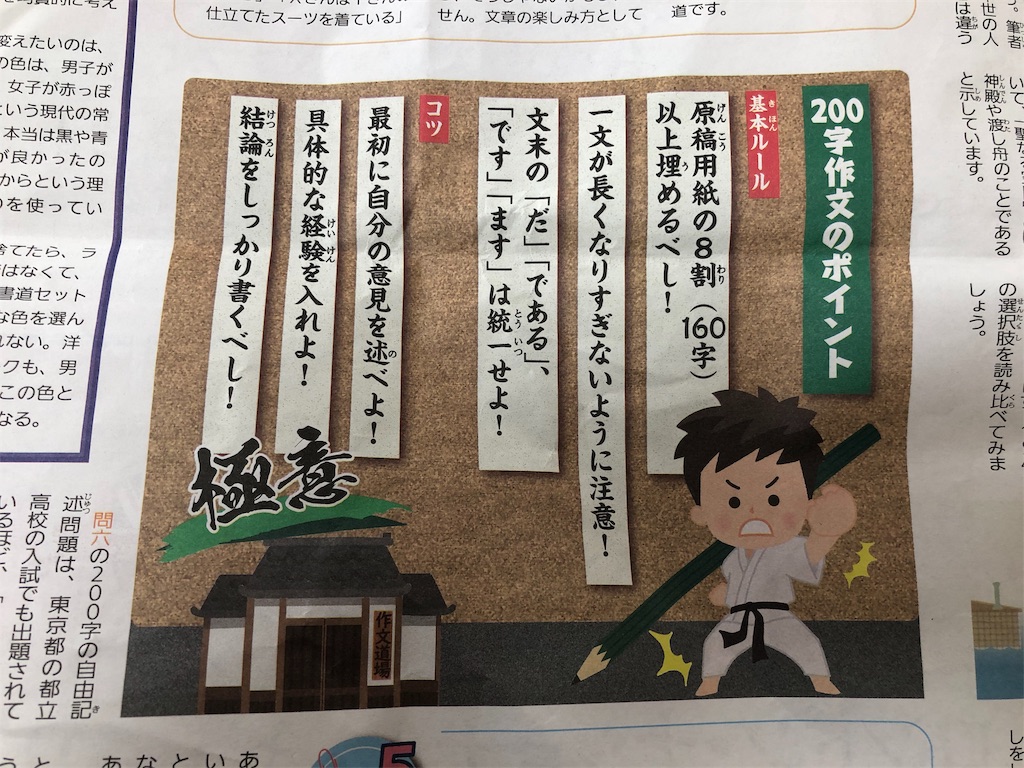 を写実的に考え
変えたいのは、
の色は、男子が
女子が赤っぽ
という現代の常
本当は黒や青
が良かったの
からという理
のを使ってい
捨てたら、ラ
はなくて、
書道セット
な色を選ん
れない。洋
クも、男
この色と
なる。
仕立てたスーツを着ている」
せん。文章の楽しみ方として
道です。
筆者
世の人
は違う
神殿や渡し舟のことである
と示しています。
の選択肢を読み比べてみま
しょう。
200字作文のポイント
基本ルール
原稿用紙の8割(160字)
以上埋めるべし!
一文が長くなりすぎないように注意!
文末の「だ」「である」、
「です」「ます」は統一せよ!
コツ
最初に自分の意見を述べよ!
具体的な経験を入れよ!
結論をしっかり書くべし!
極意
作文道場
問六の200字の自由記
述問題は、東京都の都立
高校の入試でも出題されて
いるほど、「
5